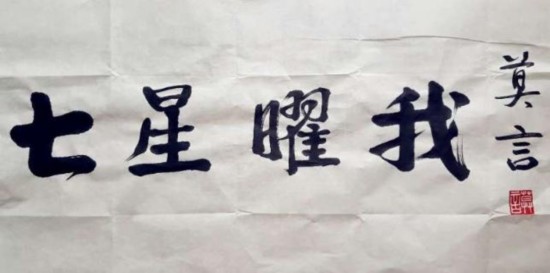 七星曜我
莫言